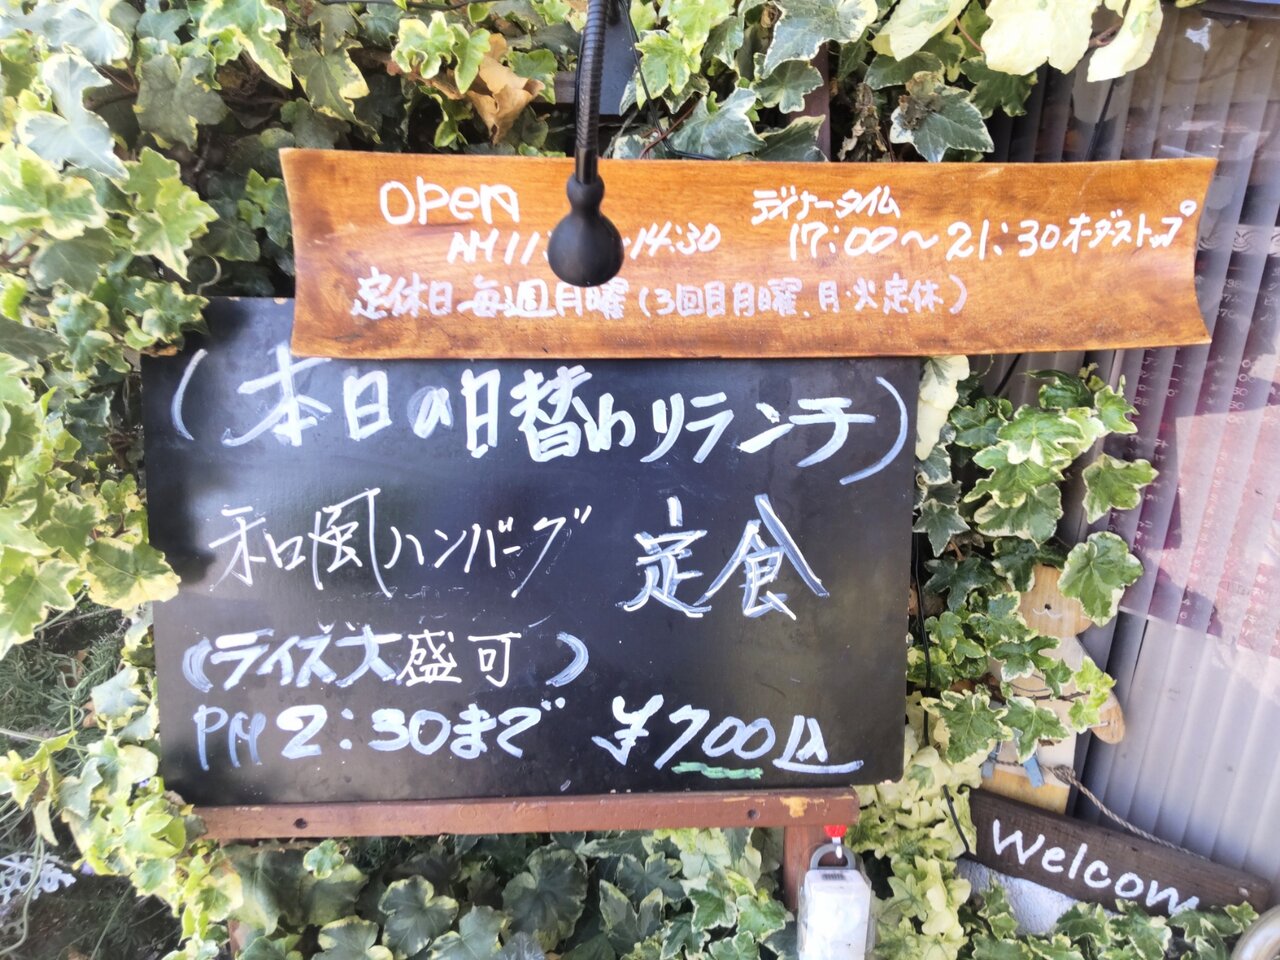 open
AM 11: 14:30
ディナータイム
17:00〜21:30オーダーストップ
定休日 毎週月曜(3回目月曜、月・火定休)
(本日の日替わりランチ)
和風ハンバーグ 定食
(ライス大盛可)
PM 2:30まで ¥700込
Welcom